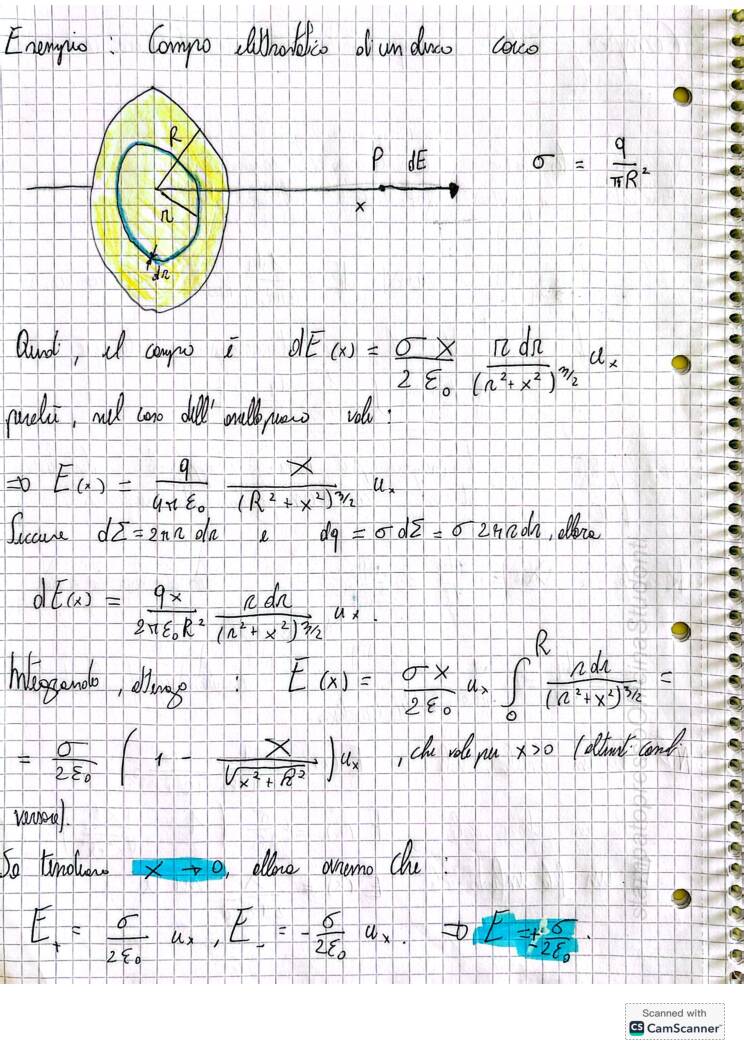 Esempio : Campo elettrostatico di un disco carico
R
P dE
σ = q / πR²
x
r
dr
Quindi, il campo è dE(x) = σ x / 2 ε₀ r dr / (r² + x²)^3/2 uₓ
perché, nel caso dell'anello piano vale :
⇒ E(x) = q / 4π ε₀ x / (R² + x²)^3/2 uₓ
Siccome dΣ = 2πr dr e dq = σ dΣ = σ 2πr dr, allora
dE(x) = q x / 2π ε₀ R² r dr / (r² + x²)^3/2 uₓ.
Integrando, ottengo : E(x) = σ x / 2 ε₀ uₓ ∫₀ᴿ r dr / (r² + x²)^3/2 =
= σ / 2ε₀ ( 1 - x / √x² + R² ) uₓ , che vale per x>0 (altrimti cambi
verso).
Se tendiamo x → 0, allora avremo che :
E₊ = σ / 2ε₀ uₓ , E₋ = - σ / 2ε₀ uₓ. ⇒ E = ± σ / 2ε₀.
Scanned with
CS CamScanner